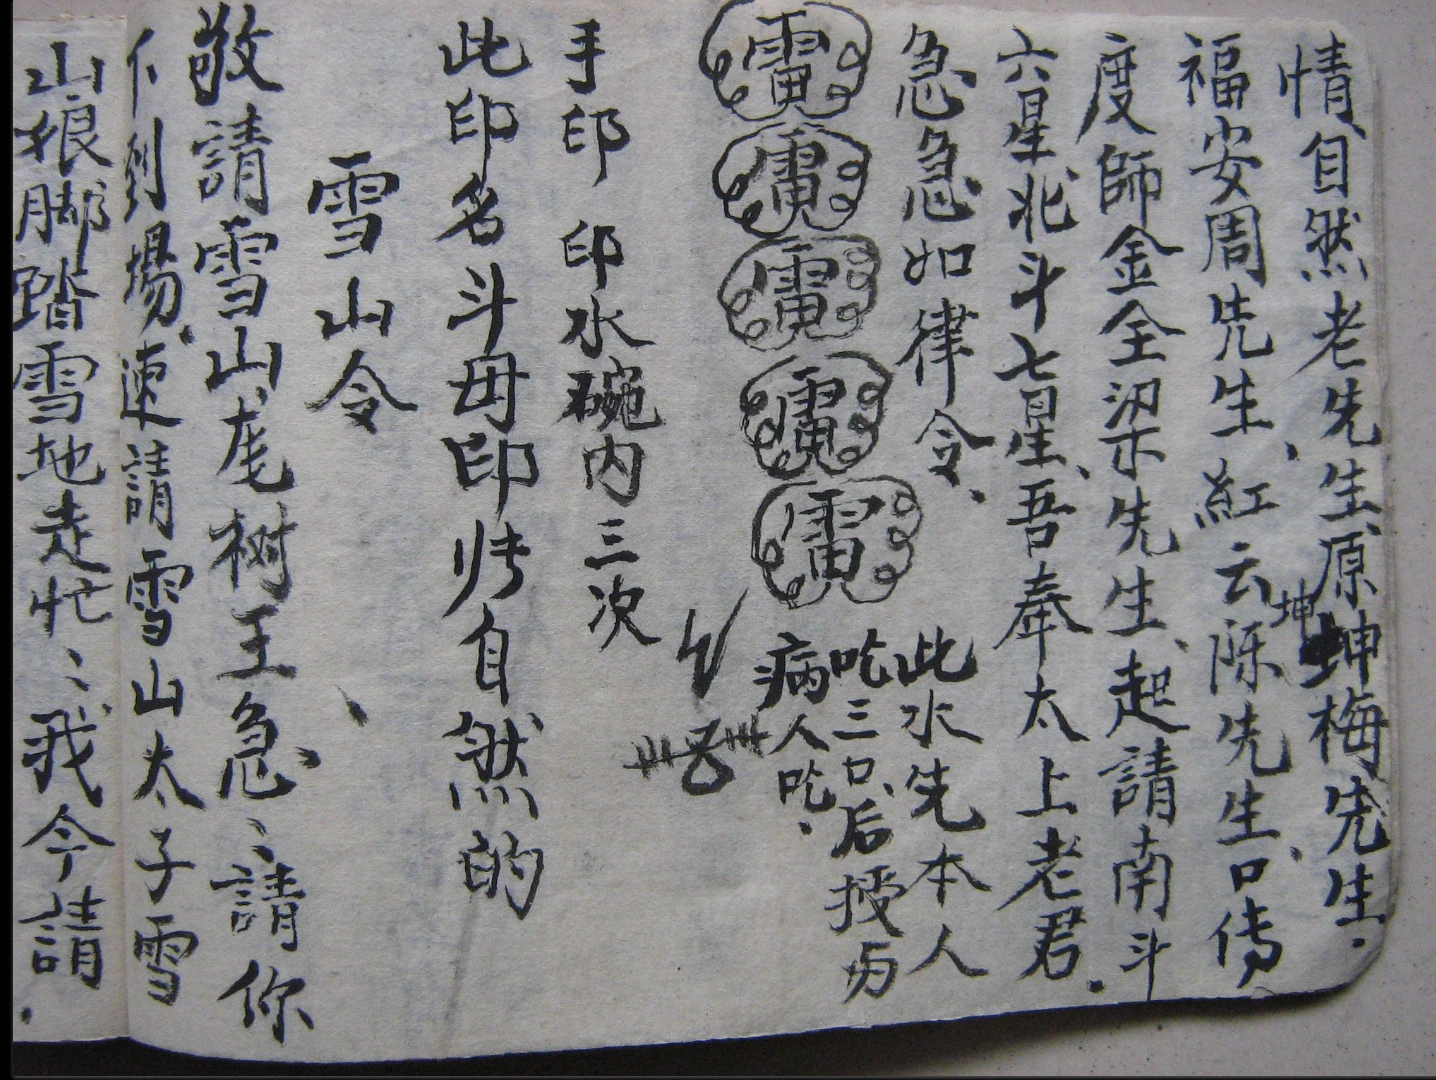 情自然老先生原坤梅先生
福安周先生、紅云陈坤先生、口傳
度師金全梁先生、起請南斗
六星北斗七星、吾奉太上老君
急急如律令、
此水先本人
吃三口、后授与
病人吃、
手印 印水碗内三次
此印名斗母印归自然的
雪山令
敬請雪山尨树王急、、請你
下到場、速請雪山太子雪
山狼脚踏雪地走忙、、我今請